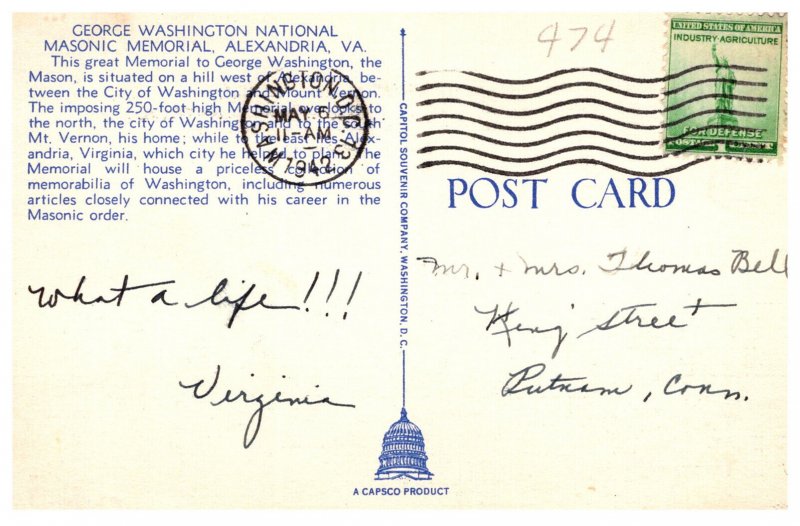 GEORGE WASHINGTON NATIONAL
MASONIC MEMORIAL, ALEXANDRIA, VA.
This great Memorial to George Washington, the
Mason, is situated on a hill west of Alexandria, be-
tween the City of Washington and Mount Vernon.
The imposing 250-foot high Memorial overlooks to
the north, the city of Washington and to the south
Mt. Vernon, his home; while to the east lies Alex-
andria, Virginia, which city he helped to plan. The
Memorial will house a priceless collection of
memorabilia of Washington, including numerous
articles closely connected with his career in the
Masonic order.
WASHINGTON, D.C.
MAY 8
11-AM
194
What a life!!!
Virginia
CAPITOL SOUVENIR COMPANY, WASHINGTON, D.C.
A CAPSCO PRODUCT
474
UNITED STATES OF AMERICA
INDUSTRY-AGRICULTURE
FOR DEFENSE
POST CARD
Mr. + Mrs. Thomas Bell
King Street
Putnam, Conn.